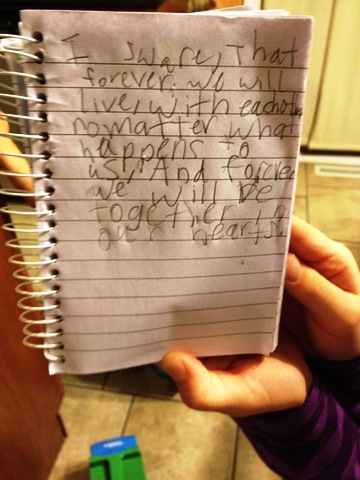 I sware, That
forever. we will
live, with each other
no matter what
happens to
us, And forever
we will be
together in
our hearts.